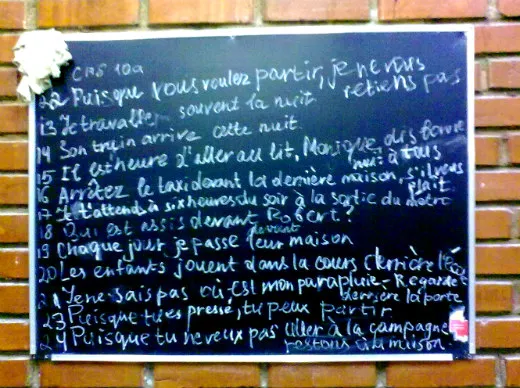 CMS 10a
22 Puisque vous voulez partir, je ne vous
retiens pas
13 Je travaille souvent la nuit
14 Son train arrive cette nuit
15 Il est heure d'aller au lit, Monique, dis bonne
nuit à tous
16 Arrêtez le taxi devant la dernière maison, s'il vous
plait.
17 Je t'attends à six heures du soir à la sortie du métro
18 Qui est assis devant Robert?
19 Chaque jour je passe devant leur maison
20 Les enfants jouent dans la cours derrière l'école
21 Je ne sais pas où est mon parapluie - Regarde
derrière la porte
23 Puisque tu es pressé, tu peux partir
24 Puisque tu ne veux pas aller à la campagne
restons à la maison.